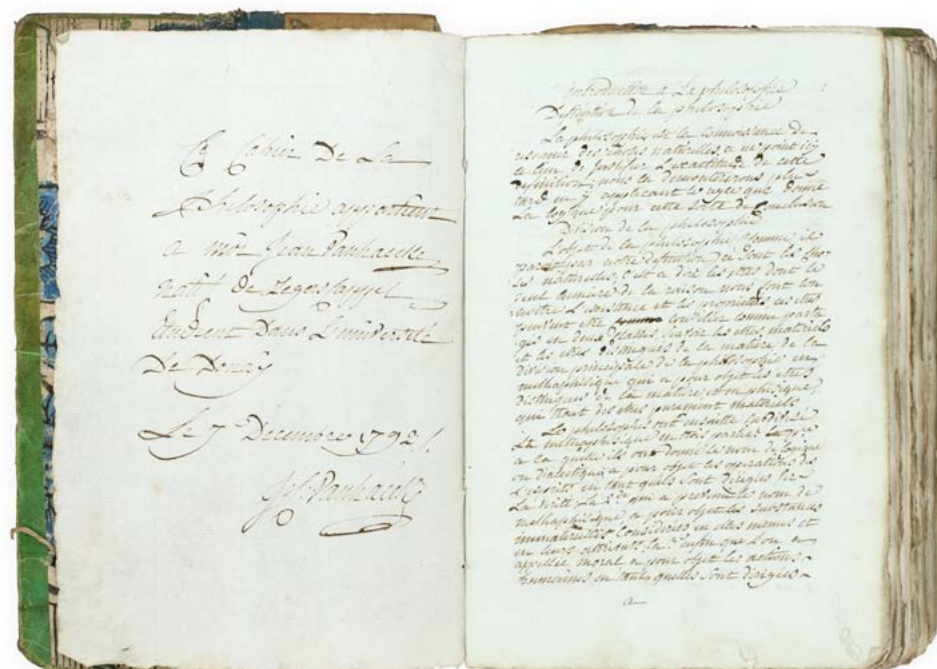 Ce Cahier De La
Philosophie appartient
a moi Jean Vanhaecke
natif de Zegerscappel
Etudient Dans L'université
De Douay
Le 7 Decembre 1792
Vanhaecke
introduction a La philosophie
Definition de la philosophie
La philosophie est la connoissance de
des choses naturelles, ce ne point icy
le lieu de justifier L'exactitude de cette
definition; nous la demontrerons plus
tard en y appliquant les que donne
La logique pour cette sorte de Conclusion
Division de la philosophie
L'objet de la philosophie Comme il
par notre definition ce sont les cho-
ses naturelles, C'est a dire les etres dont la
seul lumiere de la raison nous font con
noitre L'existance et les proprietés ces etres
peuvent etre consideré comme parta
gés en deux Classes, savoir les etres materiels
et les etres distingués de la matiere de la
division principale de la philosophie en
methaphisique qui a pour objet les etres
distingués de la matiere et en phisique
qui trait des etres purement materiels
Les philosophes ont ensuite subdivisé
La methaphisique en trois parties La 1re
a la quelle ils ont donné le nom de logique
ou dialectique a pour objet les operations de
L'esprit en tant quels sont dirigés vers
La verité La 2de qui a proprement le nom de
methaphisique a pour objet les substances
immaterielles Considerées en elles memes et
en leurs attributs la 3e enfin que L'on a
appellée moral a pour objet les actions
humaines en tant quelles sont dirigées